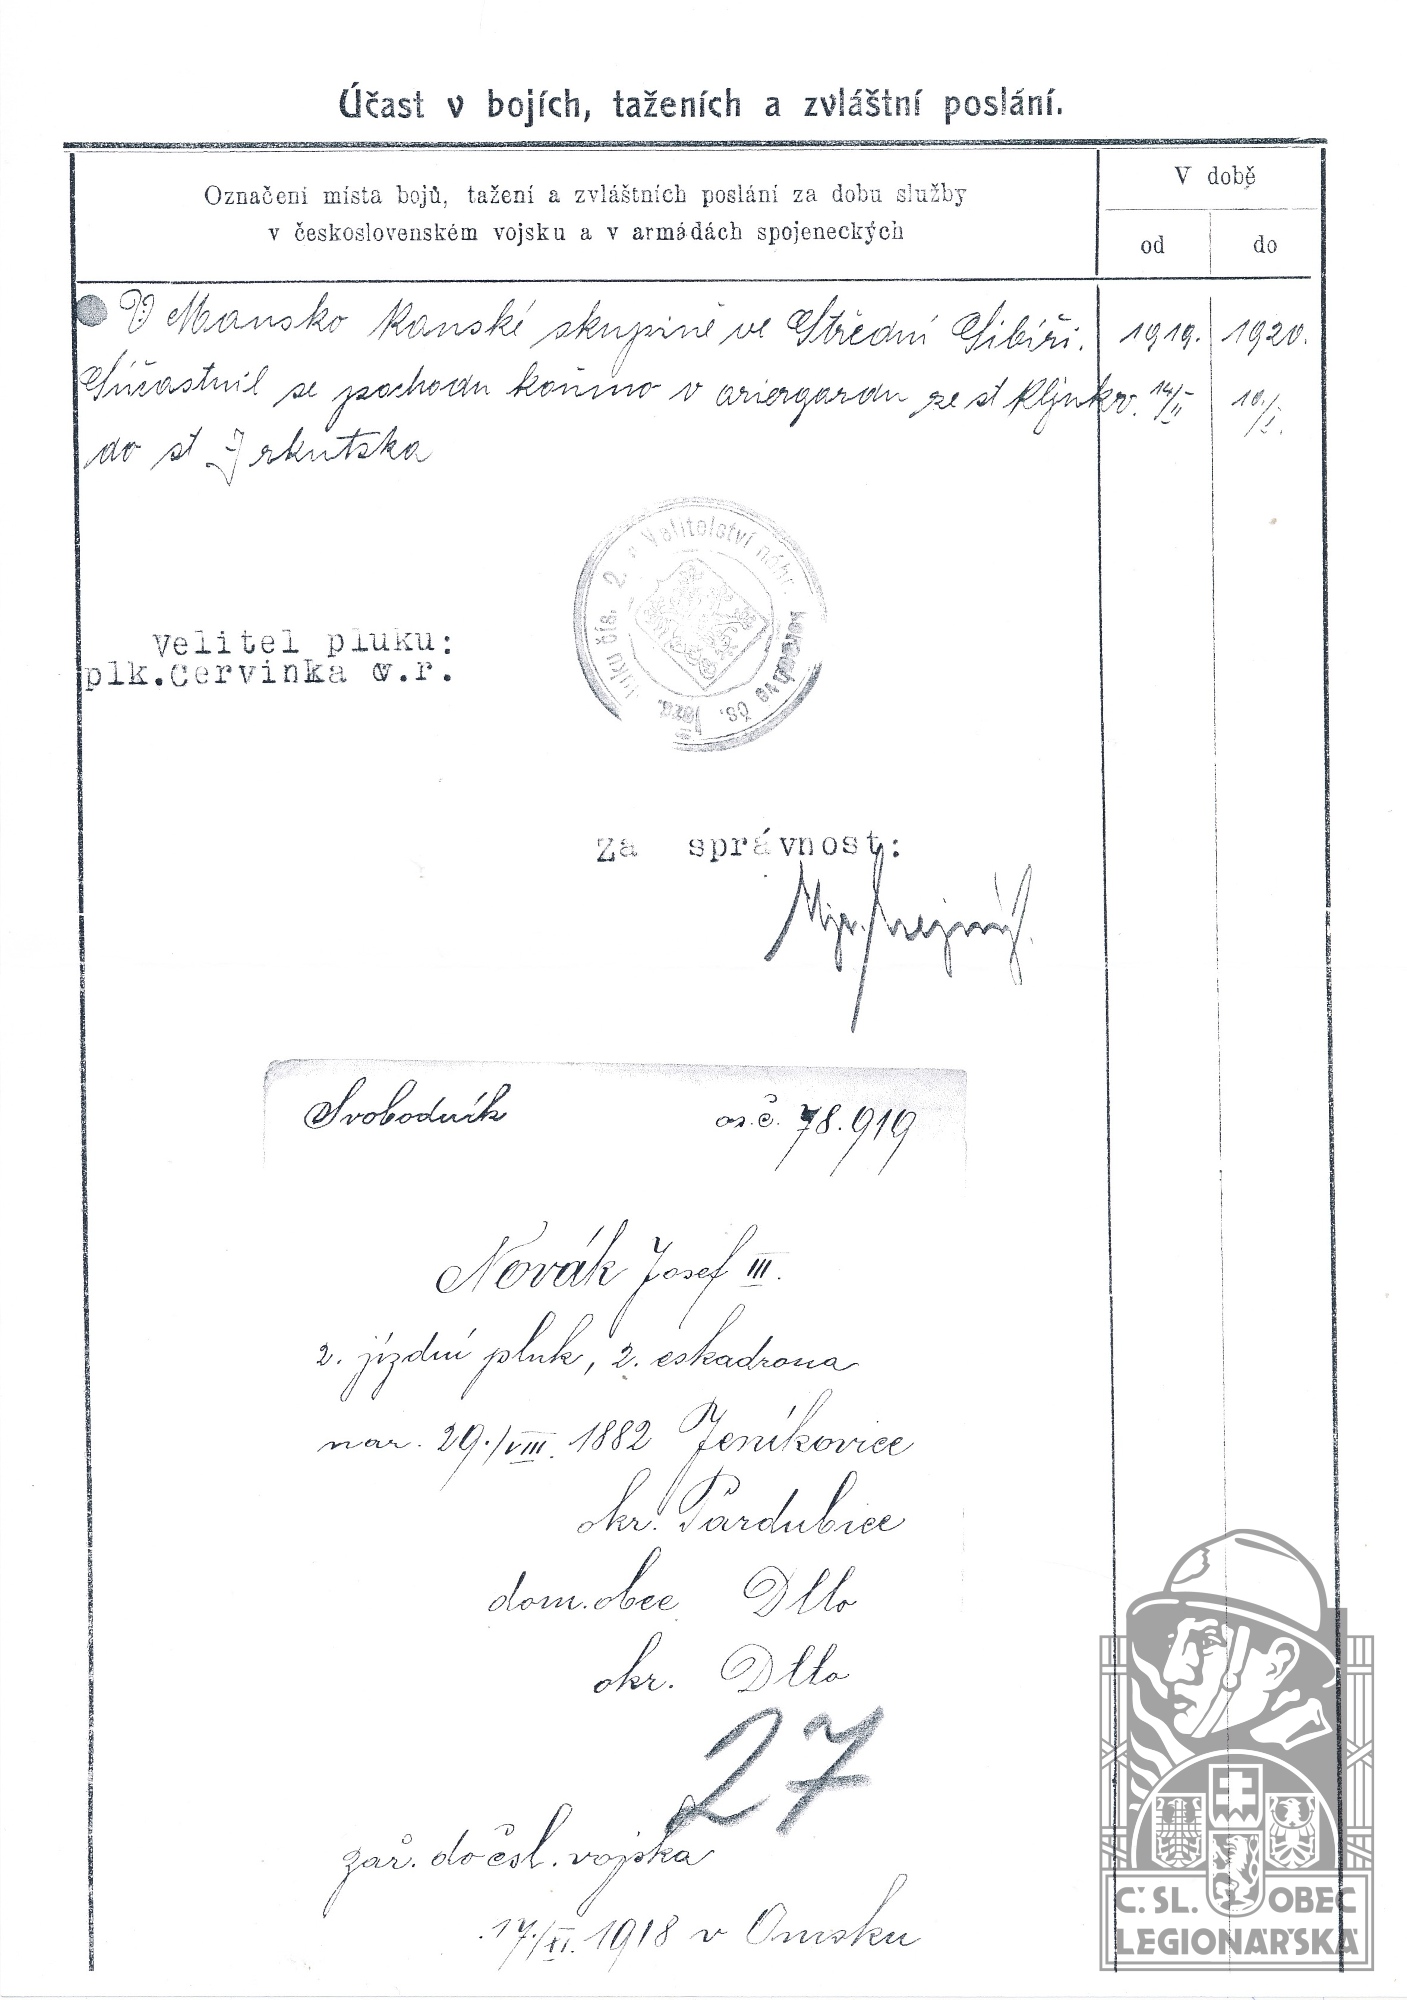 Účast v bojích, taženích a zvláštní poslání.
Označení místa bojů, tažení a zvláštních poslání za dobu služby
v československém vojsku a v armádách spojeneckých
V době
od do
V Mansko Kanské skupině ve Střední Sibiři. 1919. 1920.
Súčastnil se pochodu koňmo v ariergardu ze st Kljukv. 14/II 10./I.
do st Irkutska
Velitelství náhr. telesa čs. jízd. pluku čís. 2.
Velitel pluku:
plk.Červinka v.r.
Za správnost:
Svobodník os.č. 78.919
Novák Josef III.
2. jízdní pluk, 2. eskadrona
nar. 29./VIII. 1882 Jeníkovice
okr. Pardubice
dom. obec Dtto
okr. Dtto
27
zař. do čsl. vojska
17./XI. 1918 v Omsku
Č.SL. OBEC
LEGIONÁŘSKÁ